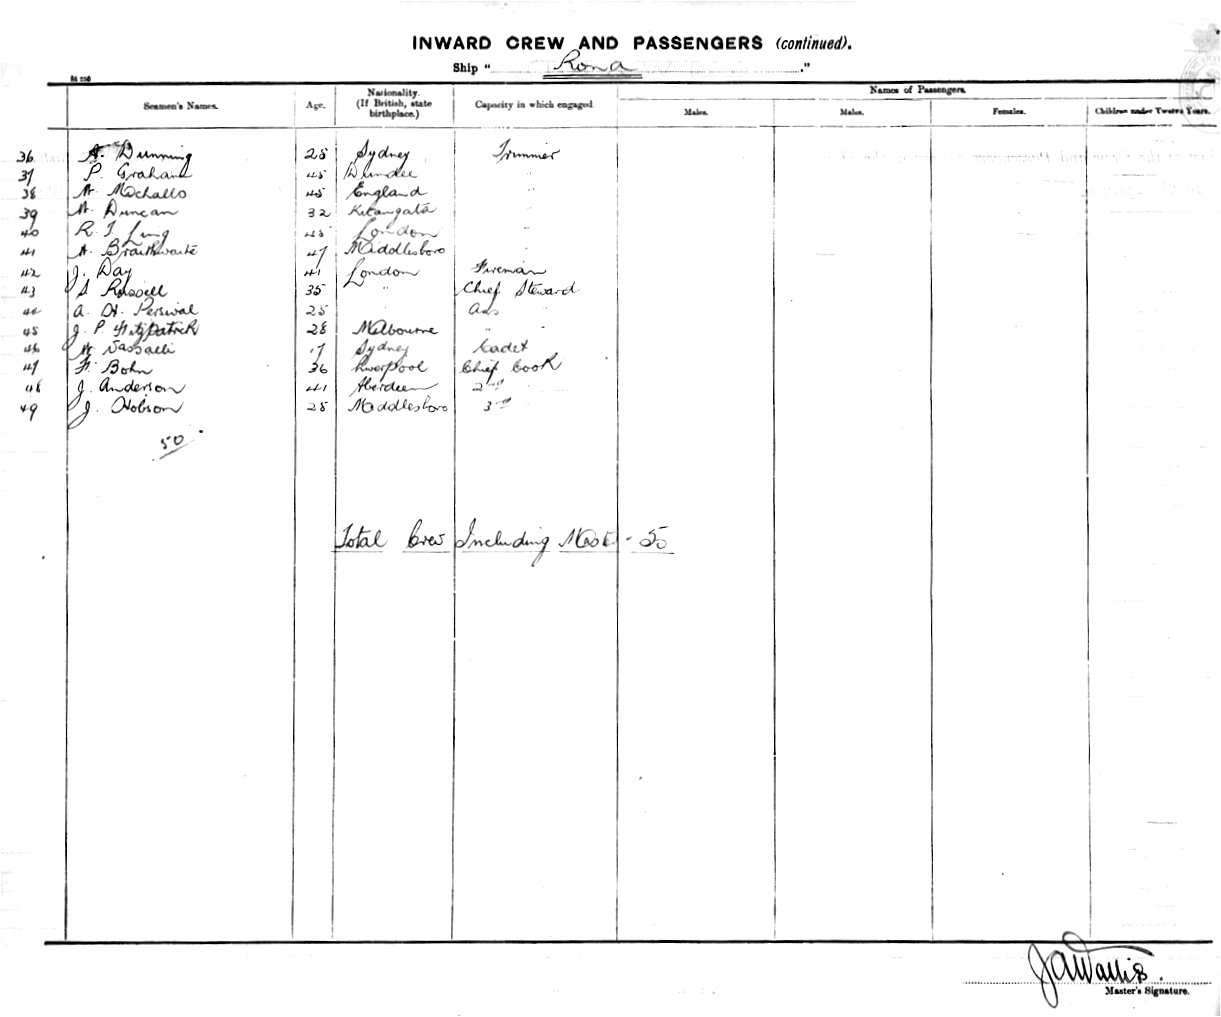 INWARD CREW AND PASSENGERS (continued).
Ship "Rona."
Seamen's Names. Age. Nationality. (If British, state birthplace.) Capacity in which engaged Names of Passengers.
Males. Males. Females. Children under Twelve Years.
36 A. Dunning 25 Sydney Trimmer
37 P. Graham 45 Dundee "
38 W. 45 England "
39 W. Duncan 32 Kitangata "
40 R. J. 45 London "
41 A. Braithwaite 47 Middlesboro "
42 J. Day 41 London Fireman
43 S Russell 35 " Chief Steward
44 A. H. Percival 25 " Ass
45 J. P. Fitzpatrick 28 Melbourne "
46 W Vassalli 17 Sydney Cadet
47 F. Bohn 36 Liverpool Chief Cook
48 J. Anderson 41 Aberdeen 2nd
49 J. Hobson 25 Middlesboro 3rd
50
Total Crew Including Mast - 50
J A Wallis.
Master's Signature.